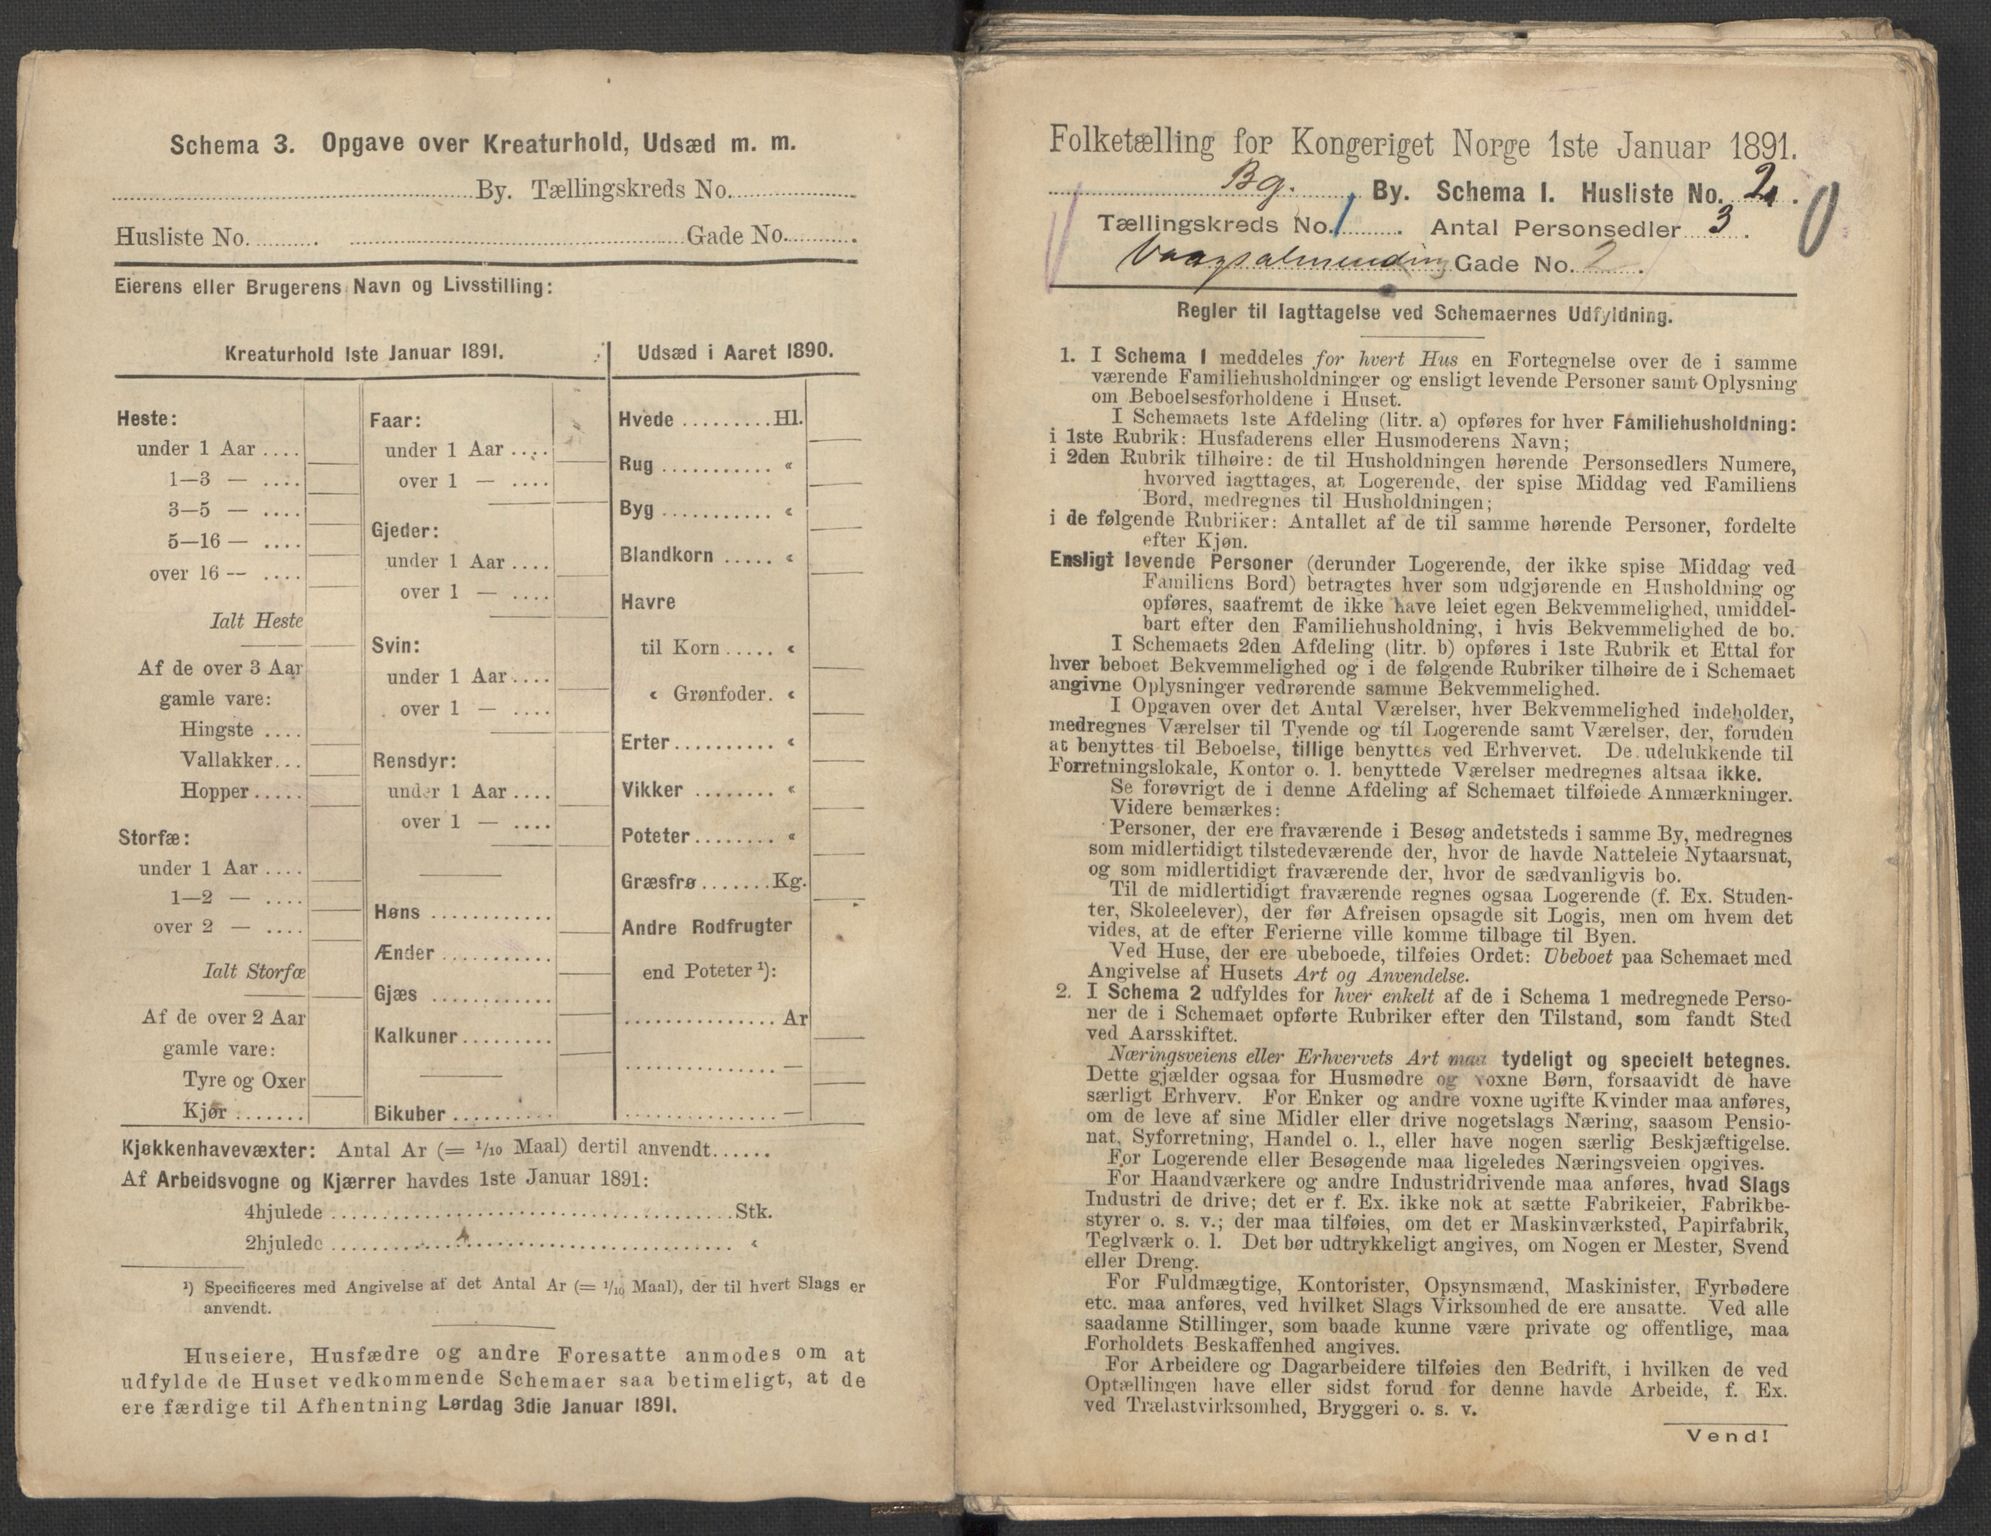 Schema 3. Opgave over Kreaturhold, Udsæd m. m.
By. Tællingskreds No.
Husliste No. Gade No.
Eierens eller Brugerens Navn og Livsstilling:
Kreaturhold 1ste Januar 1891.
Heste:
under 1 Aar ....
1—3 — ....
3—5 — ....
5—16 — ....
over 16 — ....
Ialt Heste
Af de over 3 Aar
gamle vare:
Hingste ....
Vallakker...
Hopper.....
Storfæ:
under 1 Aar ....
1—2 — ....
over 2 — ....
Ialt Storfæ
Af de over 2 Aar
gamle vare:
Tyre og Oxer
Kjør.......
Faar:
under 1 Aar ....
over 1 — ....
Gjeder:
under 1 Aar ....
over 1 — ....
Svin:
under 1 Aar....
over 1 — ....
Rensdyr:
under 1 Aar ....
over 1 — ....
Høns ............
Ænder ...........
Gjæs ............
Kalkuner.........
Bikuber ..........
Udsæd i Aaret 1890.
Hvede .........Hl.
Rug ........... «
Byg ........... «
Blandkorn ..... «
Havre
til Korn ..... «
« Grønfoder. «
Erter.......... «
Vikker ........ «
Poteter........ «
Græsfrø.......Kg.
Andre Rodfrugter
end Poteter ¹):
............... Ar
............... —
............... —
Kjøkkenhavevæxter: Antal Ar (= ¹/₁₀ Maal) dertil anvendt......
Af Arbeidsvogne og Kjærrer havdes 1ste Januar 1891:
4hjulede ....................................Stk.
2hjulede .................................... «
¹) Specificeres med Angivelse af det Antal Ar (= ¹/₁₀ Maal), der til hvert Slags er
anvendt.
Huseiere, Husfædre og andre Foresatte anmodes om at
udfylde de Huset vedkommende Schemaer saa betimeligt, at de
ere færdige til Afhentning Lørdag 3die Januar 1891.
Folketælling for Kongeriget Norge 1ste Januar 1891.
Bg. By. Schema I. Husliste No. 2.
Tællingskreds No. 1. Antal Personsedler 3.
Vaagsalmending Gade No. 2.
Regler til Iagttagelse ved Schemaernes Udfyldning.
1. I Schema 1 meddeles for hvert Hus en Fortegnelse over de i samme
værende Familiehusholdninger og ensligt levende Personer samt Oplysning
om Beboelsesforholdene i Huset.
I Schemaets 1ste Afdeling (litr. a) opføres for hver Familiehusholdning:
i 1ste Rubrik: Husfaderens eller Husmoderens Navn;
i 2den Rubrik tilhøire: de til Husholdningen hørende Personsedlers Numere,
hvorved iagttages, at Logerende, der spise Middag ved Familiens
Bord, medregnes til Husholdningen;
i de følgende Rubriker: Antallet af de til samme hørende Personer, fordelte
efter Kjøn.
Ensligt levende Personer (derunder Logerende, der ikke spise Middag ved
Familiens Bord) betragtes hver som udgjørende en Husholdning og
opføres, saafremt de ikke have leiet egen Bekvemmelighed, umiddel-
bart efter den Familiehusholdning, i hvis Bekvemmelighed de bo.
I Schemaets 2den Afdeling (litr. b) opføres i 1ste Rubrik et Ettal for
hver beboet Bekvemmelighed og i de følgende Rubriker tilhøire de i Schemaet
angivne Oplysninger vedrørende samme Bekvemmelighed.
I Opgaven over det Antal Værelser, hver Bekvemmelighed indeholder,
medregnes Værelser til Tyende og til Logerende samt Værelser, der, foruden
at benyttes til Beboelse, tillige benyttes ved Erhvervet. De udelukkende til
Forretningslokale, Kontor o. l. benyttede Værelser medregnes altsaa ikke.
Se forøvrigt de i denne Afdeling af Schemaet tilføiede Anmærkninger.
Videre bemærkes:
Personer, der ere fraværende i Besøg andetsteds i samme By, medregnes
som midlertidigt tilstedeværende der, hvor de havde Natteleie Nytaarsnat,
og som midlertidigt fraværende der, hvor de sædvanligvis bo.
Til de midlertidigt fraværende regnes ogsaa Logerende (f. Ex. Studen-
ter, Skoleelever), der før Afreisen opsagde sit Logis, men om hvem det
vides, at de efter Ferierne ville komme tilbage til Byen.
Ved Huse, der ere ubeboede, tilføies Ordet: Ubeboet paa Schemaet med
Angivelse af Husets Art og Anvendelse.
2. I Schema 2 udfyldes for hver enkelt af de i Schema 1 medregnede Perso-
ner de i Schemaet opførte Rubriker efter den Tilstand, som fandt Sted
ved Aarsskiftet.
Næringsveiens eller Erhvervets Art maa tydeligt og specielt betegnes.
Dette gjælder ogsaa for Husmødre og voxne Børn, forsaavidt de have
særligt Erhverv. For Enker og andre voxne ugifte Kvinder maa anføres,
om de leve af sine Midler eller drive nogetslags Næring, saasom Pensio-
nat, Syforretning, Handel o. l., eller have nogen særlig Beskjæftigelse.
For Logerende eller Besøgende maa ligeledes Næringsveien opgives.
For Haandværkere og andre Industridrivende maa anføres, hvad Slags
Industri de drive; det er f. Ex. ikke nok at sætte Fabrikeier, Fabrikbe-
styrer o. s. v.; der maa tilføies, om det er Maskinværksted, Papirfabrik,
Teglværk o. l. Det bør udtrykkeligt angives, om Nogen er Mester, Svend
eller Dreng.
For Fuldmægtige, Kontorister, Opsynsmænd, Maskinister, Fyrbødere
etc. maa anføres, ved hvilket Slags Virksomhed de ere ansatte. Ved alle
saadanne Stillinger, som baade kunne være private og offentlige, maa
Forholdets Beskaffenhed angives.
For Arbeidere og Dagarbeidere tilføies den Bedrift, i hvilken de ved
Optællingen have eller sidst forud for denne havde Arbeide, f. Ex.
ved Trælastvirksomhed, Bryggeri o. s. v.
Vend!